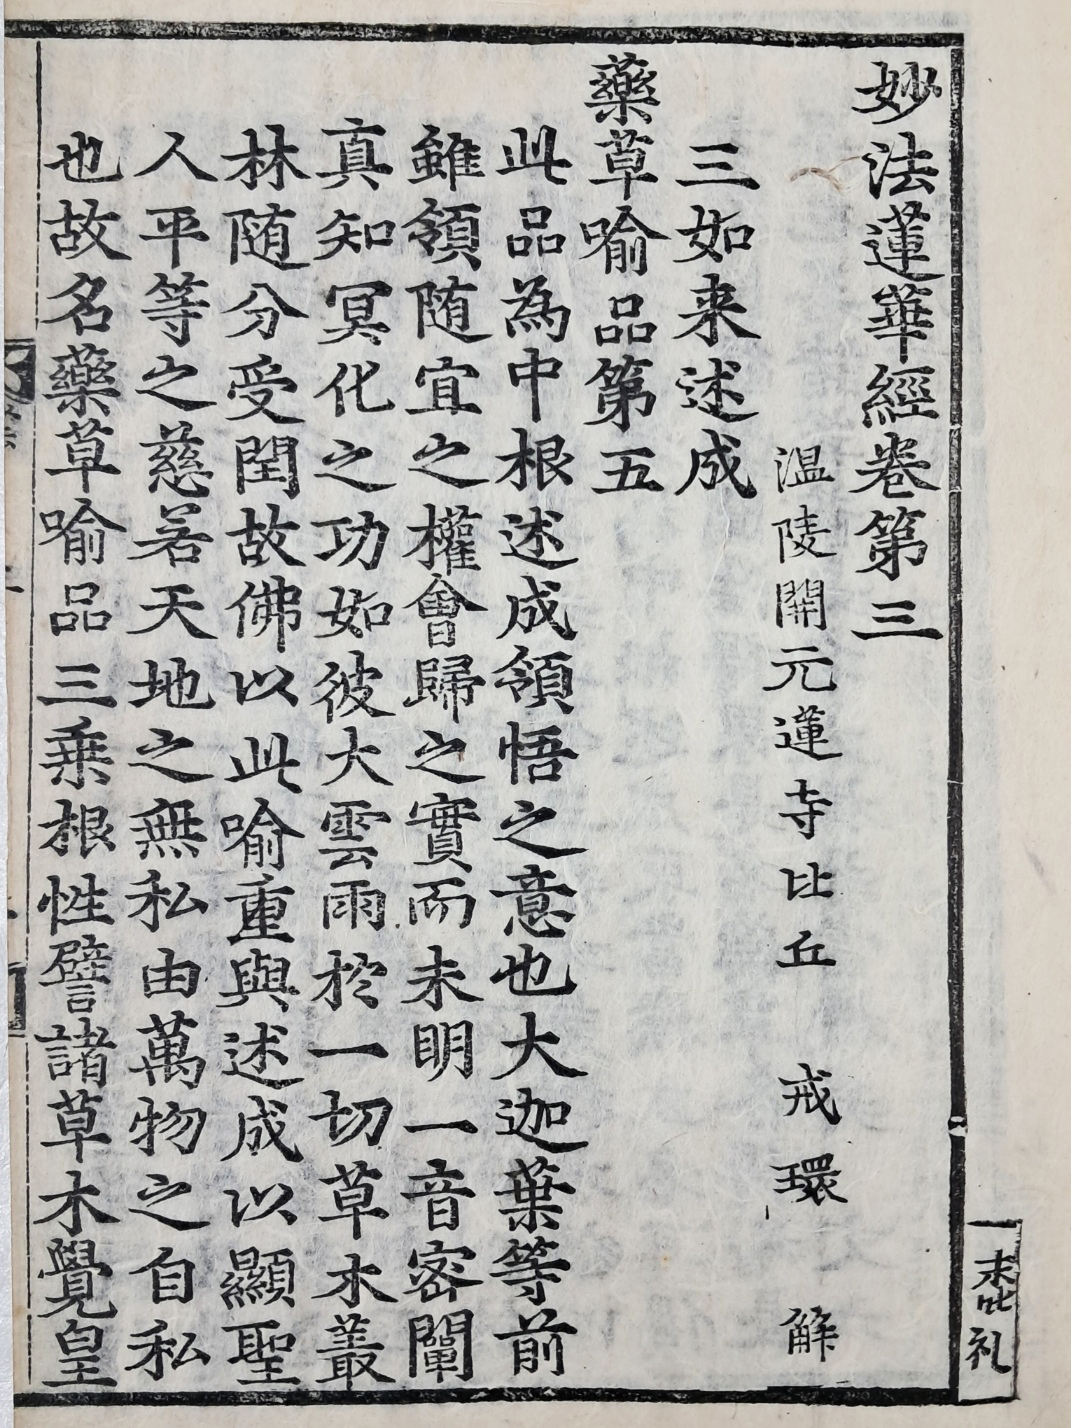 妙法蓮華經卷第三
温陵開元蓮寺比丘 戒環 解
三如来述成
藥草喻品第五
此品為中根述成領悟之意也大迦葉等前
雖領随宜之權會歸之實而未明一音密闡
真知冥化之功如彼大雲雨於一切草木叢
林随分受閏故佛以此喻重與述成以顯聖
人平等之慈若天地之無私由萬物之自私
也故名藥草喻品三乗根性譬諸草木覺皇